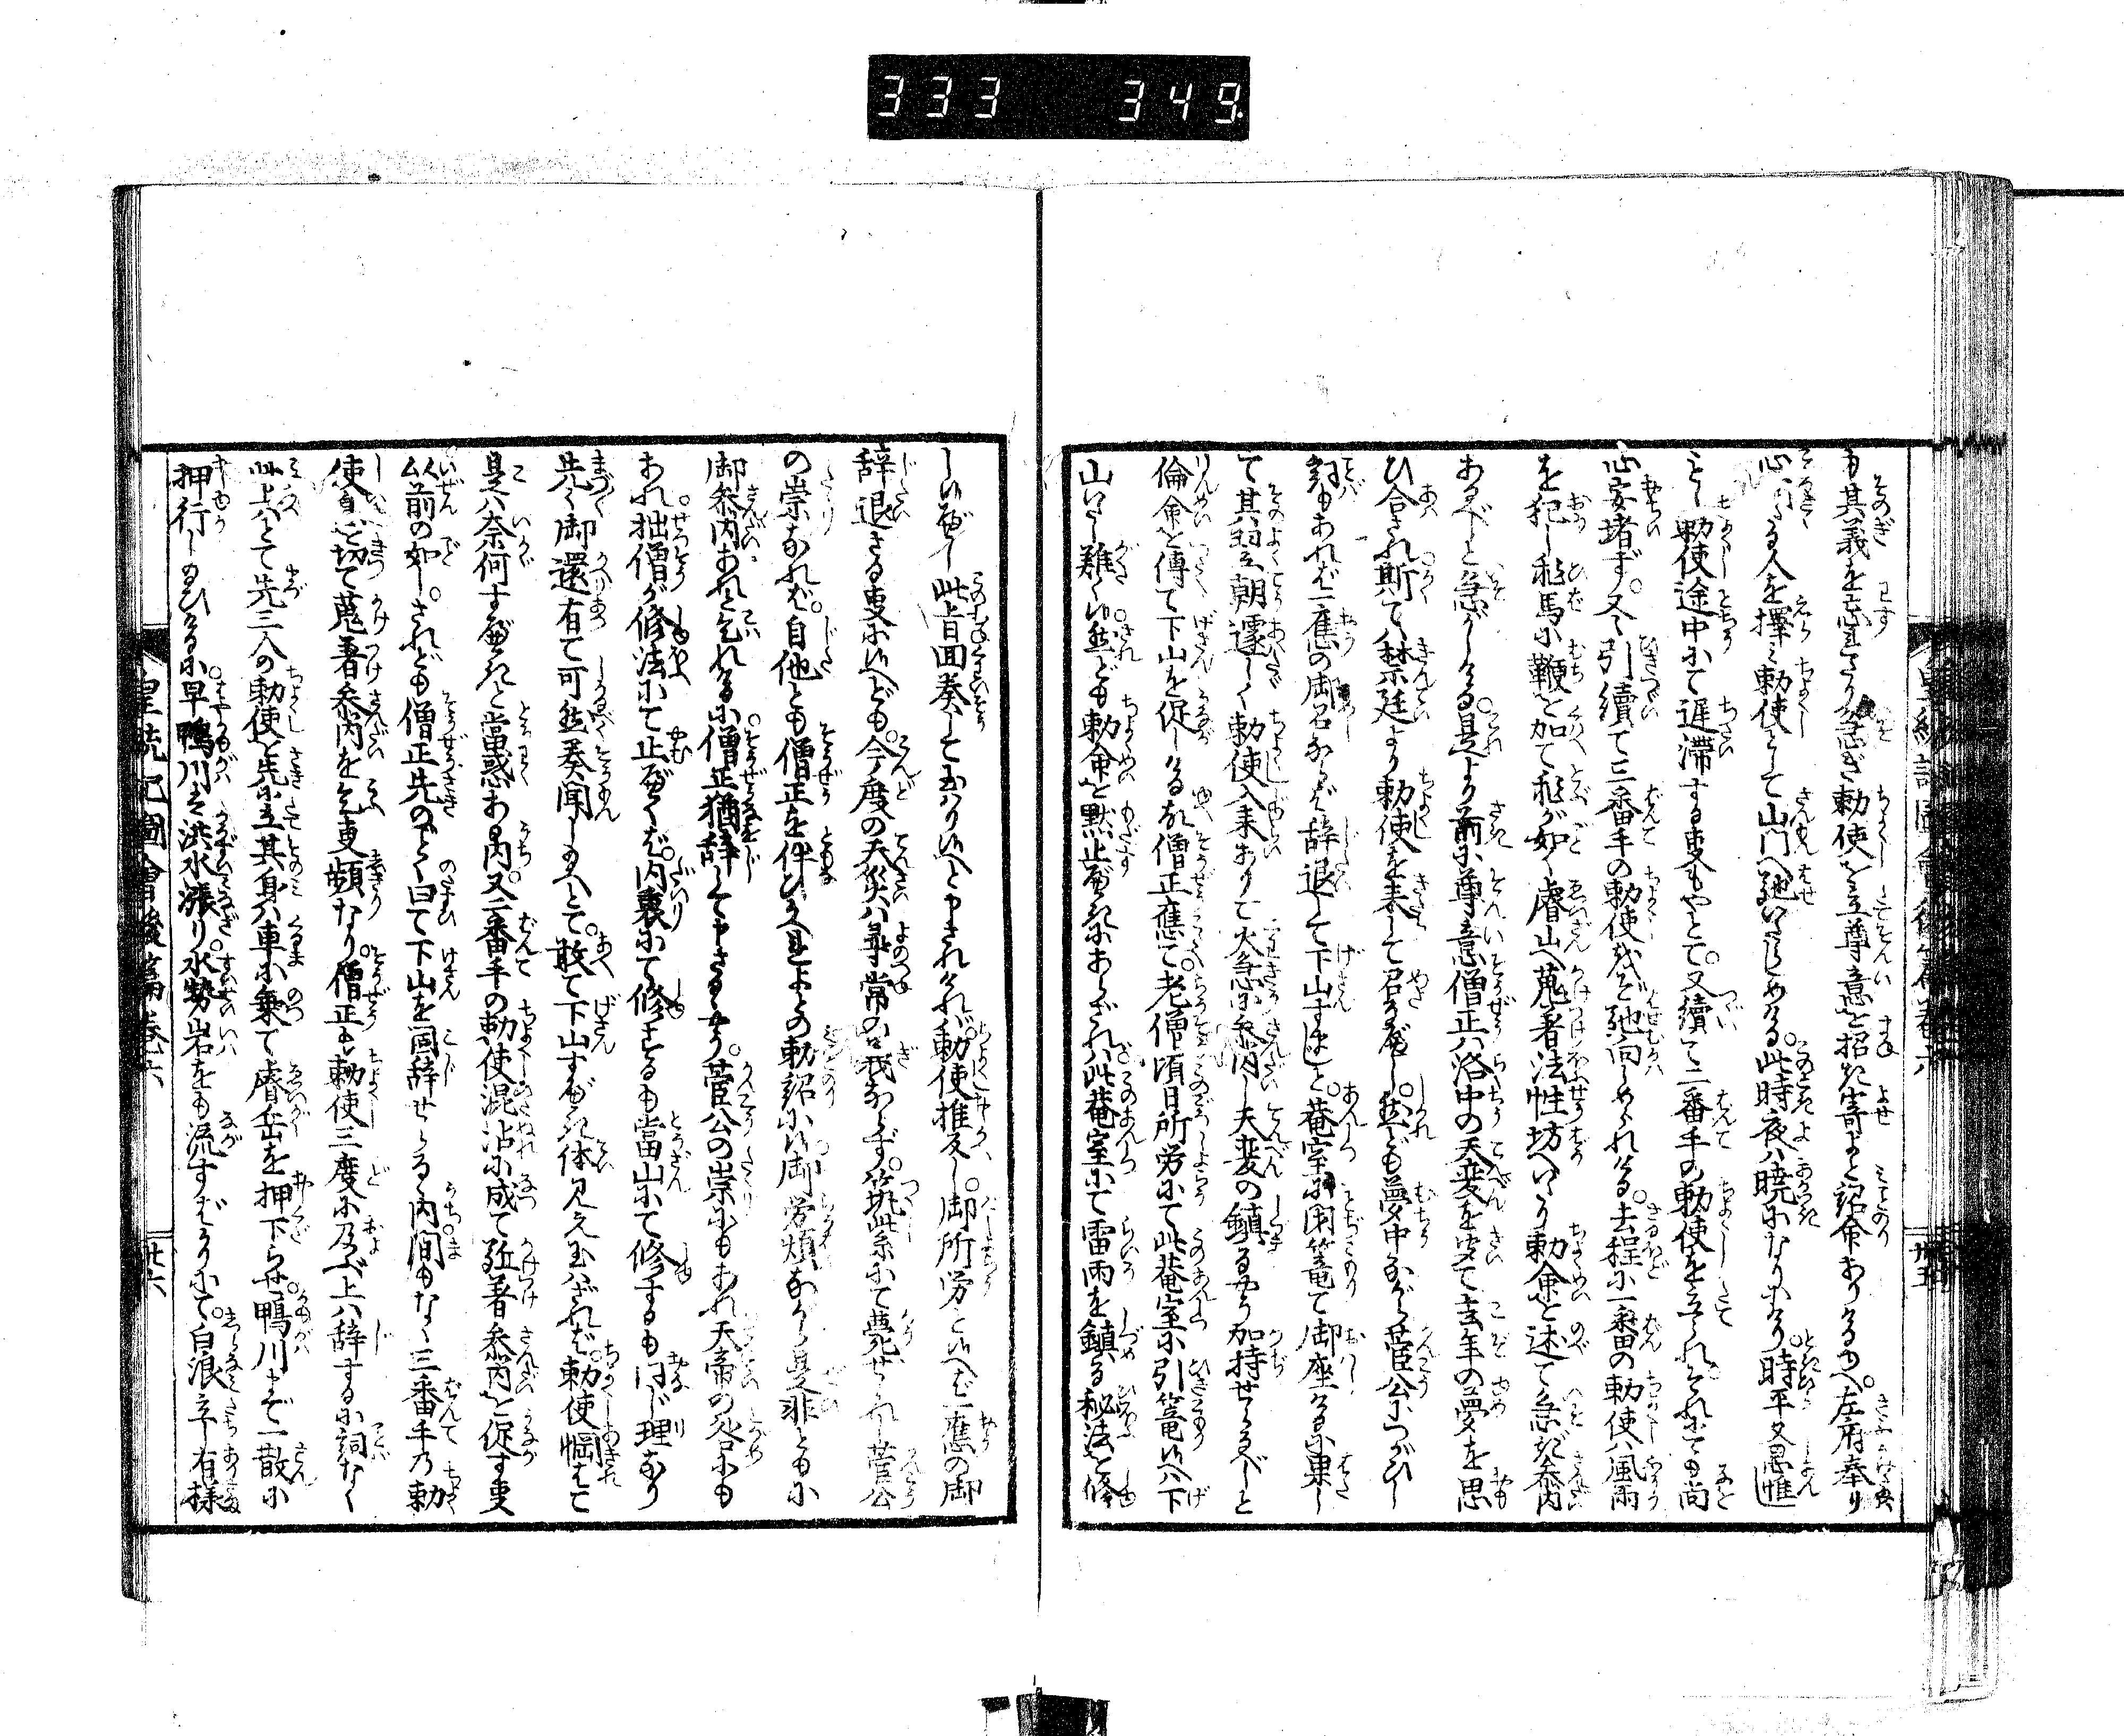 333 349
も其義を忘れたり急ぎ勅使を立尊意を招き寄よと詔命ありけるゆへ左府奉り
心きゝたる人を擇み勅使として山門へ馳いたらしめける此時夜ハ暁になりにけり時平又思惟
らく勅使途中にて遅滞する事もやとて又続て二番手の勅使を立られそれにても尚
心安堵ず又々引續て三番手の勅使をぞ馳向しめられける去程に一番の勅使ハ風雨
を犯し飛馬に鞭を加て飛が如く睿山へ駆着法性坊へいたり勅命を述て急ぎ参内
あるべしと急がしける是より前に尊意僧正ハ洛中の天変を察て去年の夢を思
ひ合され斯てハ禁廷より勅使を来して召るべし然ども夢中ながら菅公につがひし
詞もあれば一應の御召ならバ辞退して下山すまじと菴室に閉篭て御座けるに果し
て其翌朝遽しく勅使入来ありて火急に参内し天変の鎮るやう加持せらるべしと
倫命を傳て下山を促しける故僧正應て老僧頃日所労にて此菴室に引篭候へバ下
山いたし難く候然ども勅命を黙止べきにあらざれバ此菴室にて雷雨を鎮る秘法を修
し候べし此旨回奏して玉ハり候へと申されけれバ勅使推及し御所労と候へど一應の御
辞退さる事に候へども今度の天災ハ尋常の義ならず筑紫にて薨ぜられし菅公
の祟なれば自他とも僧正を伴ひかへれよとの勅詔に候御労煩ながら是非ともに
御参内あれと乞れけるに僧正猶辞して申さるゝやう菅公の祟にもあれ天帝の咎にも
あれ拙僧が修法にて止べくば内裏にて修するも當山にて修するも同じ理なり
先々御還有て可然奏聞し玉へとて敢て下山すべき体見え玉ハざれば勅使惘はて
是ハ奈何すべきと當惑ある内又二番手の勅使混沾に成て駆着参内を促す事
以前の如しされども僧正先のごとく曰て下山を固辞せらるゝ内間もなく三番手の勅
使息を切て駆着参内を乞事頻なり僧正も勅使三度に及ぶ上ハ辞するに詞なく
此上ハとて先三人の勅使を先に立其身ハ車に乗て睿岳を押下らせ鴨川まで一散に
押行しめけるに早鴨川ハ洪水漲り水勢岩をも流すばかりにて白浪立有様
皇統記圖會後篇巻六 廿六